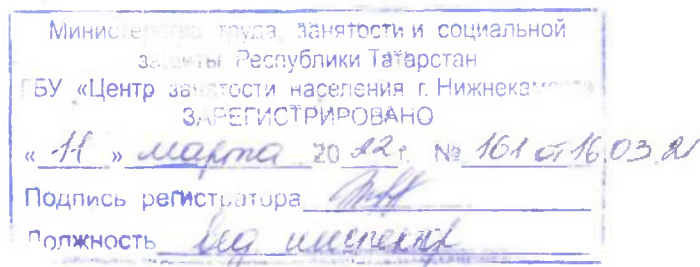 Министерство труда, занятости и социальной
защиты Республики Татарстан
ГБУ «Центр занятости населения г. Нижнекамска
ЗАРЕГИСТРИРОВАНО
«11» марта 2022 г. № 161 от 16.03.2
Подпись регистратора
Должность вед инспектор